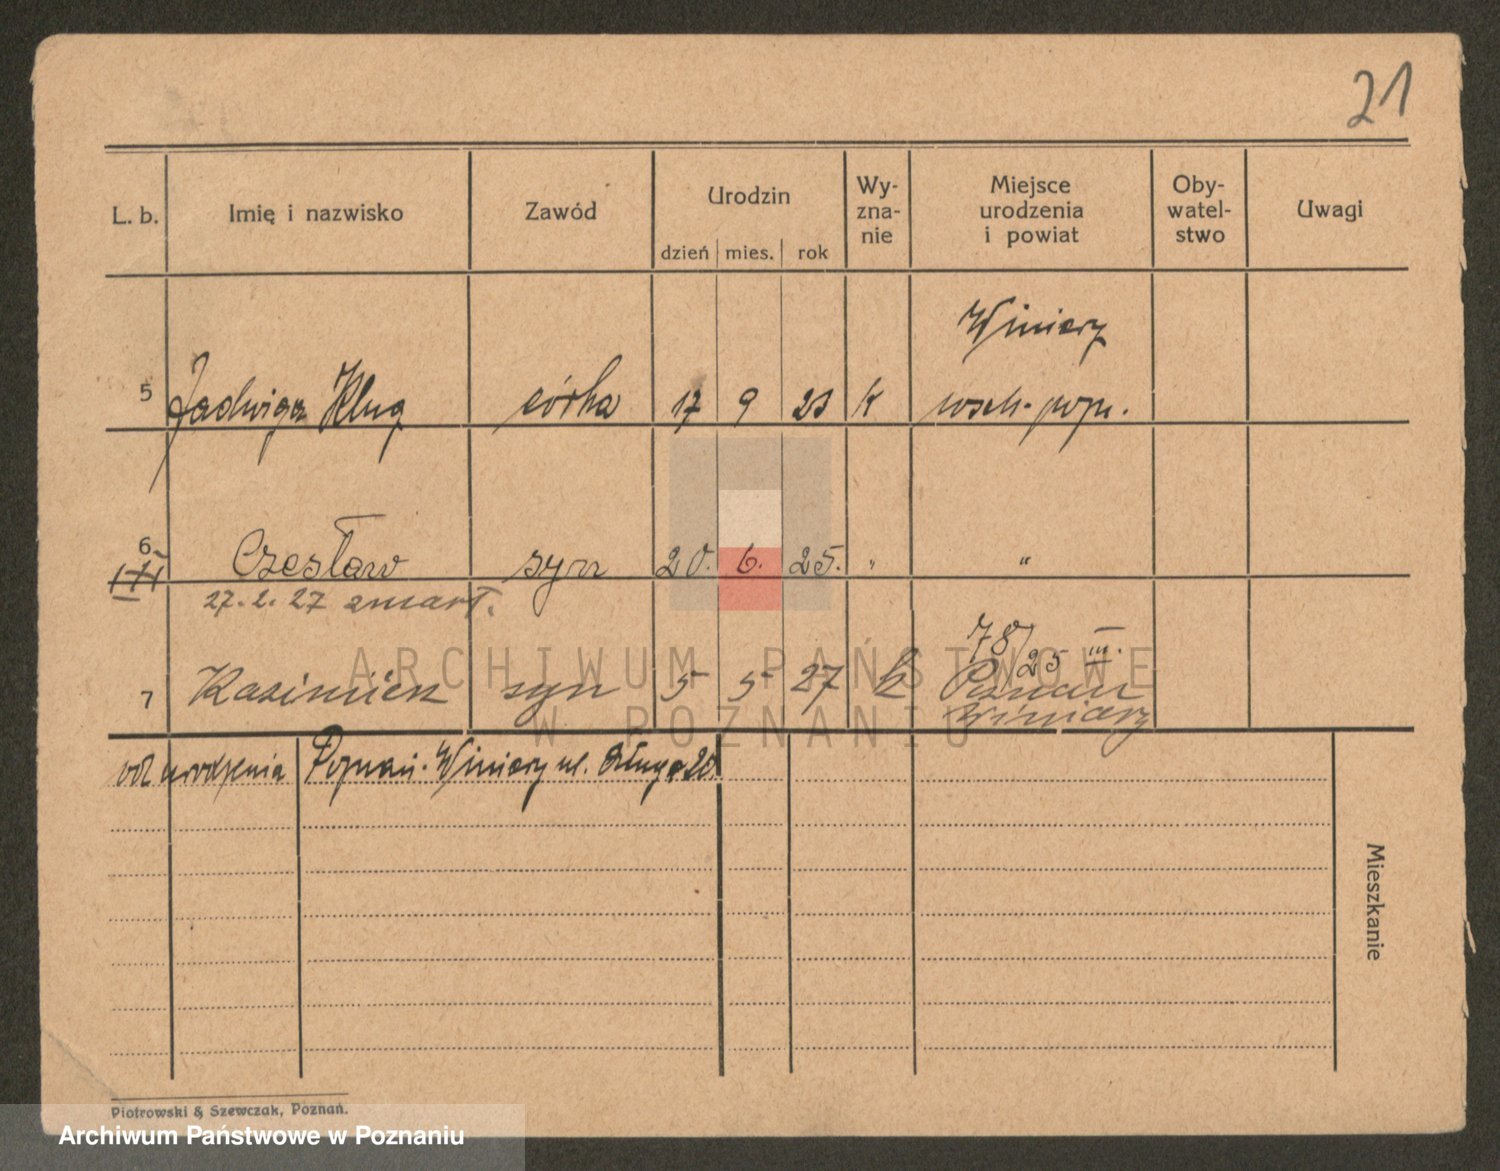 21
L. b. Imię i nazwisko Zawód Urodzin dzień mies. rok Wy-zna-nie Miejsce urodzenia i powiat Oby-watel-stwo Uwagi
Winiary
5 Jadwiga Klug córka 17 9 23 k wsch-pozn.
6 Czesław syn 20. 6. 25. " "
27. 2. 27 zmarł.
78/25 III.
7 Kazimierz syn 5 5 27 k Poznań
Winiary
od urodzenia Poznań-Winiary ul. Długa 20
Mieszkanie
Piotrowski & Szewczak, Poznań.
ARCHIWUM PAŃSTWOWE
W POZNANIU
Archiwum Państwowe w Poznaniu